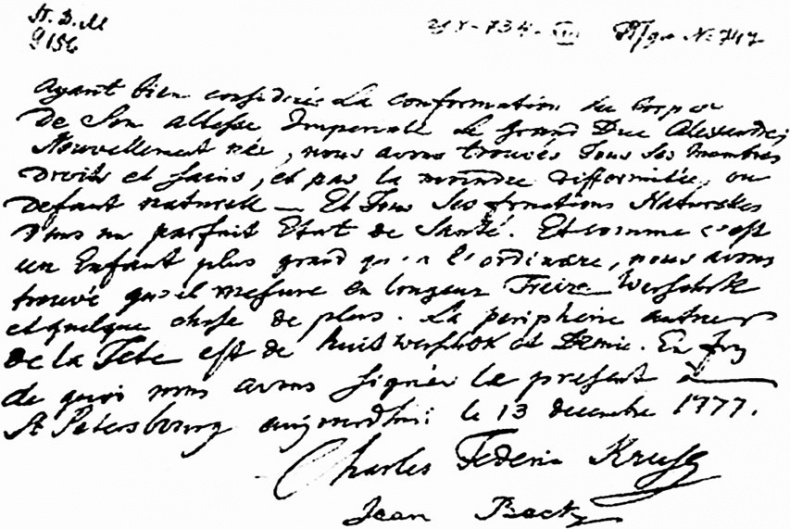 A. D. M
9156
Ayant bien considerée La conformation du Corps
De Son Altesse Imperiale Le Grand Duc Alexandre,
Nouvellement née, nous avons trouvés tous ses membres
Droits et sains, et pas la moindre difformitée, ou
Defaut naturelle — Et tous ses fonctions Naturelles
dans un parfait Etat de Santé. Et comme c'est
un Enfant plus grand qu'a l'ordinaire, nous avons
trouvé qu'il mesure en longeur Treize Werschok
et quelque chose de plus. La peripherie autour
de la Tete est de huit werschok et Demie. En foy
de quoi nous avons signée le present à
St Petersbourg aujourdhui le 13 decembre 1777.
Charles Federic Kruse
Jean